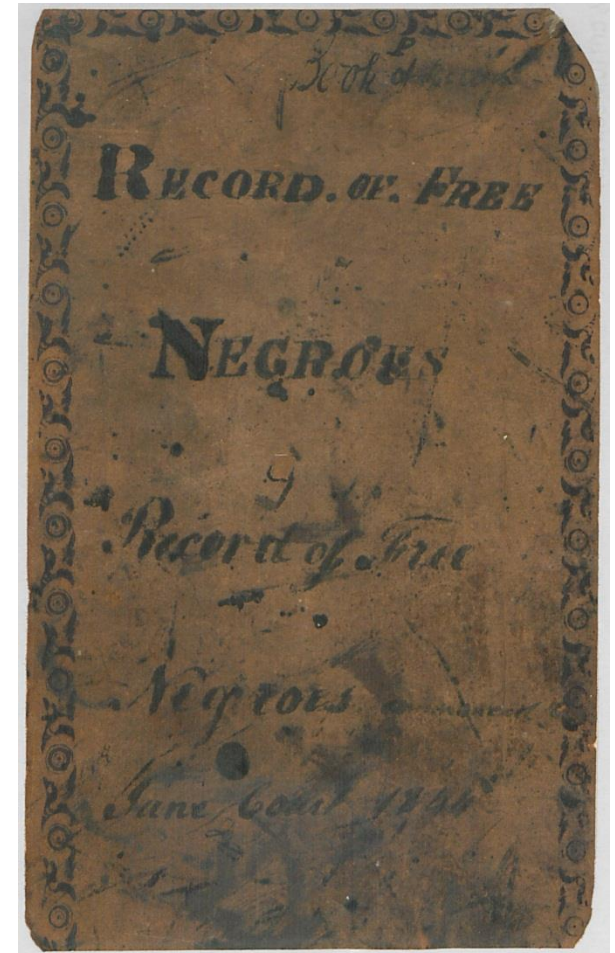 Book of
RECORD. OF. FREE
NEGROES
Record of Free
Negroes
June Court